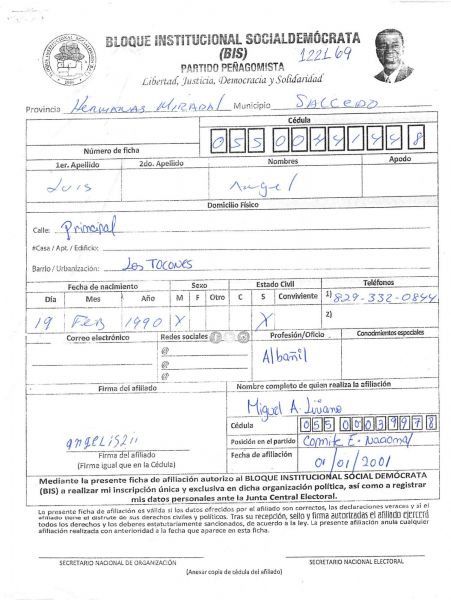 BLOQUE INSTITUCIONAL SOCIALDEMÓCRATA
(BIS)
122169
PARTIDO PEÑAGOMISTA
Libertad, Justicia, Democracia y Solidaridad
Provincia Hermanas Mirabal Municipio SALCEDO
Cédula
Número de ficha 05500441448
1er. Apellido 2do. Apellido Nombres Apodo
Luis Angel
Domicilio Físico
Calle: Principal
#Casa / Apt. / Edificio:
Barrio / Urbanización: Los Tocones
Fecha de nacimiento Sexo Estado Civil Teléfonos
Día Mes Año M F Otro C S Conviviente 1) 829-332-0844
19 FEB 1990 X X 2)
Correo electrónico Redes sociales Profesión/Oficio Conocimientos especiales
@ Albañil
@
@
Firma del afiliado Nombre completo de quien realiza la afiliación
Miguel A.
Cédula 05500039978
Firma del afiliado Posición en el partido Comite E. Nacional
(Firme igual que en la Cédula) Fecha de afiliación 01/01/2001
Mediante la presente ficha de afiliación autorizo al BLOQUE INSTITUCIONAL SOCIAL DEMÓCRATA
(BIS) a realizar mi inscripción única y exclusiva en dicha organización política, así como a registrar
mis datos personales ante la Junta Central Electoral.
La presente ficha de afiliación es válida si los datos ofrecidos por el afiliado son correctos, las declaraciones veraces y si el
afiliado tiene el disfrute de sus derechos civiles y políticos. Tras su recepción, sello y firma autorizadas el afiliado ejercerá
todos los derechos y los deberes estatutariamente sancionados, de acuerdo a la ley. La presente afiliación anula cualquier
afiliación realizada con anterioridad a la fecha que aparece en esta ficha.
SECRETARIO NACIONAL DE ORGANIZACIÓN SECRETARIO NACIONAL ELECTORAL
(Anexar copia de cédula del afiliado)